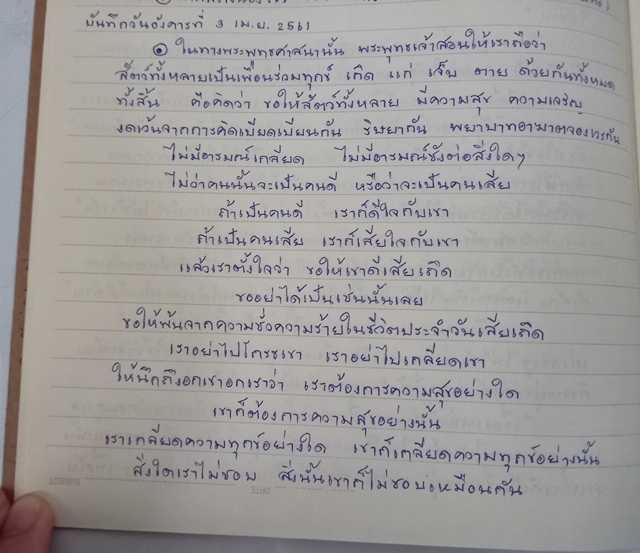 บันทึกวันอังคารที่ 3 เม.ย. 2561
① ในทางพระพุทธศาสนานั้น พระพุทธเจ้าสอนให้เราถือว่า
สัตว์ทั้งหลายเป็นเพื่อนร่วมทุกข์ เกิด แก่ เจ็บ ตาย ด้วยกันทั้งหมด
ทั้งสิ้น คือคิดว่า ขอให้สัตว์ทั้งหลาย มีความสุข ความเจริญ
งดเว้นจากการคิดเบียดเบียนกัน ริษยากัน พยาบาทอาฆาตจองเวรกัน
ไม่มีอารมณ์เกลียด ไม่มีอารมณ์ชังต่อสิ่งใดๆ
ไม่ว่าคนนั้นจะเป็นคนดี หรือว่าจะเป็นคนเสีย
ถ้าเป็นคนดี เราก็ดีใจกับเขา
ถ้าเป็นคนเสีย เราก็เสียใจกับเขา
แล้วเราตั้งใจว่า ขอให้เขาดีเสียเถิด
ขออย่าได้เป็นเช่นนั้นเลย
ขอให้พ้นจากความชั่วความร้ายในชีวิตประจำวันเสียเถิด
เราอย่าไปโกรธเขา เราอย่าไปเกลียดเขา
ให้นึกถึงอกเขาอกเราว่า เราต้องการความสุขอย่างใด
เขาก็ต้องการความสุขอย่างนั้น
เราเกลียดความทุกข์อย่างใด เขาก็เกลียดความทุกข์อย่างนั้น
สิ่งใดเราไม่ชอบ สิ่งนั้นเขาก็ไม่ชอบเหมือนกัน
SUBJECT DATE